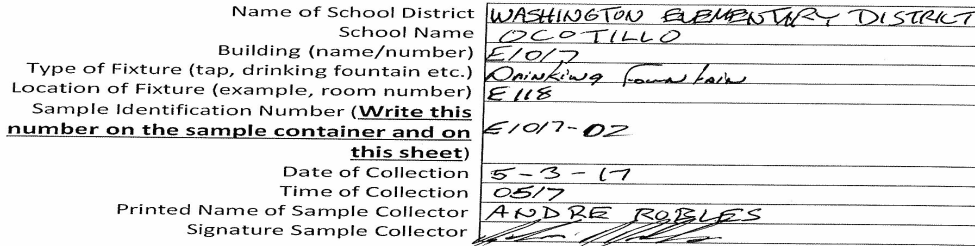 Name of School District WASHINGTON ELEMENTARY DISTRICT
School Name OCOTILLO
Building (name/number) E1017
Type of Fixture (tap, drinking fountain etc.) Drinking Fountain
Location of Fixture (example, room number) E118
Sample Identification Number (Write this
number on the sample container and on E1017-02
this sheet)
Date of Collection 5-3-17
Time of Collection 0517
Printed Name of Sample Collector ANDRE ROBLES
Signature Sample Collector